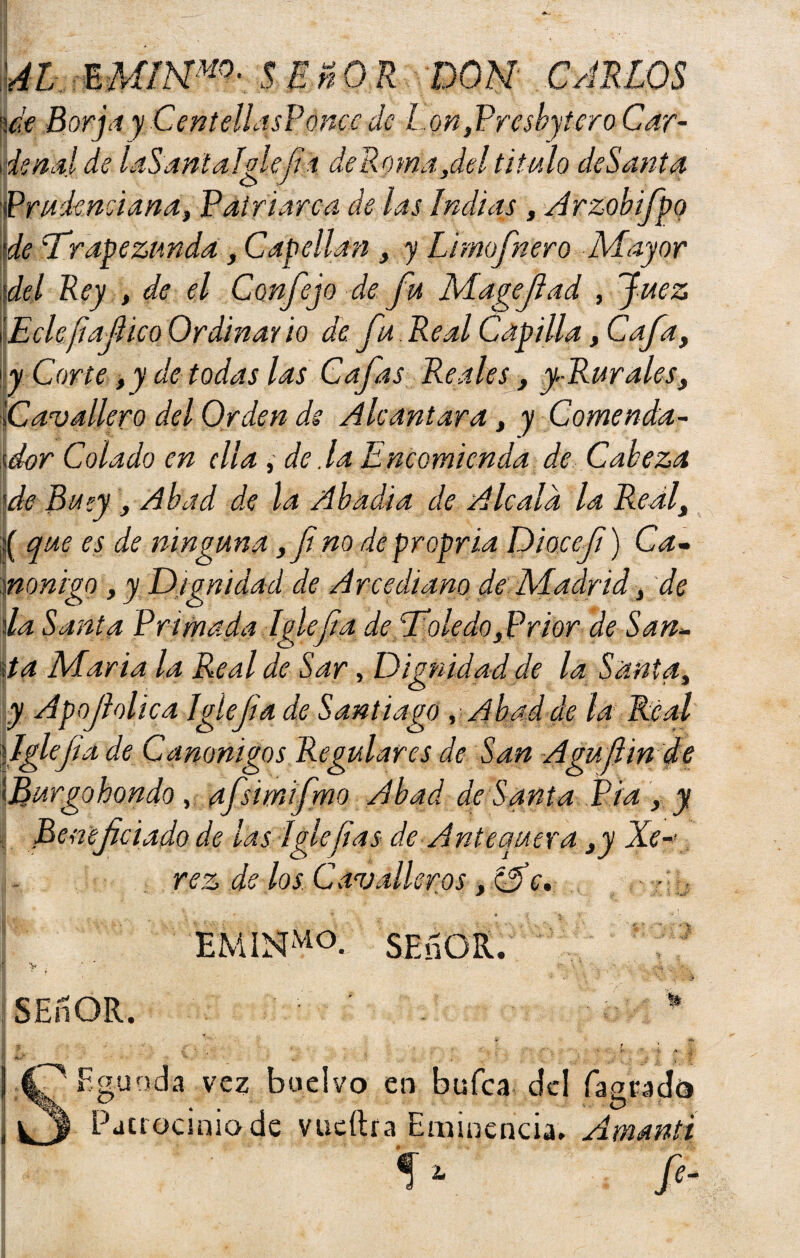 AL EMINᴹᴼ. SEñOR DON CARLOS
de Borja y Centellas Ponce de Lon, Presbytero Car-
denal de la Santa Iglesia de Roma, del titulo de Santa
Prudenciana, Patriarca de las Indias, Arzobiſpo
de Trapezunda, Capellan, y Limoſnero Mayor
del Rey, de el Conſejo de ſu Mageſtad, Juez
Ecleſiaſtico Ordinario de ſu Real Capilla, Caſa,
y Corte, y de todas las Caſas Reales, y Rurales,
Cavallero del Orden de Alcantara, y Comenda-
dor Colado en ella, de la Encomienda de Cabeza
de Buey, Abad de la Abadia de Alcalà la Real,
( que es de ninguna, ſi no de propria Dioceſi) Ca-
nonigo, y Dignidad de Arcediano de Madrid, de
la Santa Primada Igleſia de Toledo, Prior de San-
ta Maria la Real de Sar, Dignidad de la Santa,
y Apoſtolica Igleſia de Santiago, Abad de la Real
Igleſia de Canonigos Regulares de San Aguſtin de
Burgohondo, aſsimiſmo Abad de Santa Pia, y
Beneficiado de las Igleſias de Antequera, y Xe-
rez de los Cavalleros, &c.
EMINᴹᴼ. SEñOR.
SEñOR.
SEgunda vez buelvo en buſca del ſagrado
Patrocinio de vueſtra Eminencia. Amanti
¶ 2 ſe-